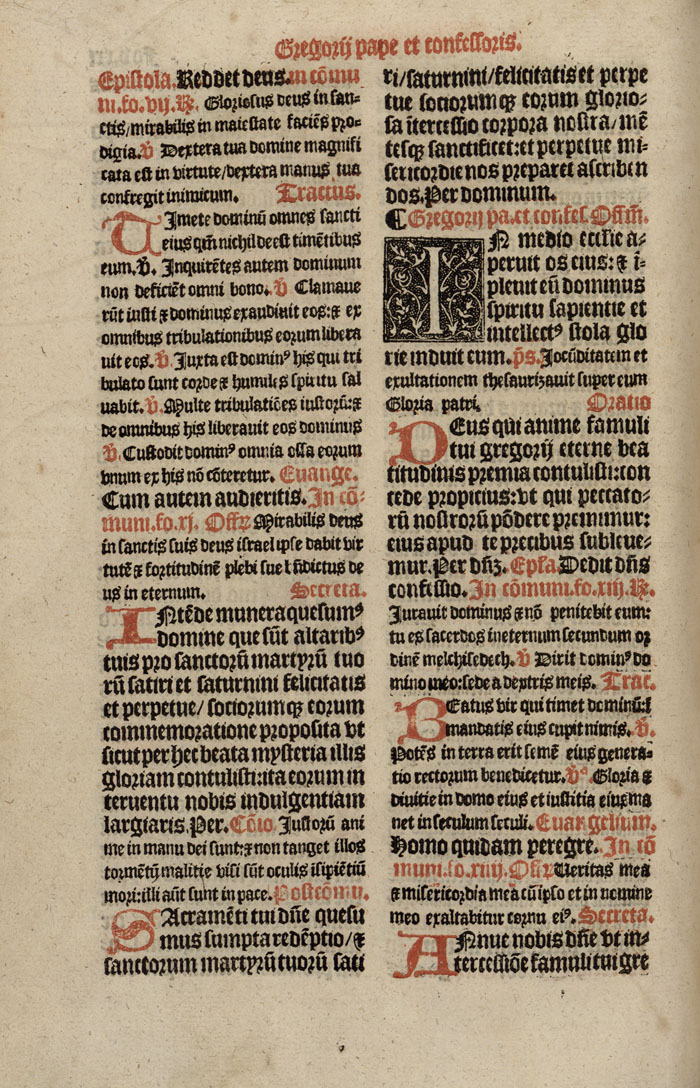 Gregorij pape et confessoris.
Epistola. Reddet deus. in cōmu
ni. fo. vij. R̄. Gloriosus deus in san⸗
ctis/mirabilis in maiestate faciēs pro⸗
digia. v̄ Dextera tua domine magnifi
cata est in virtute/dextera manus tua
confregit inimicum. Tractus.
TImete dominū omnes sancti
eius qm̄ nichil deest timētibus
eum. v̄. Inquirētes autem dominum
non deficiēt omni bono. v̄ Clamaue
rūt iusti ⁊ dominus exaudiuit eos: ⁊ ex
omnibus tribulationibus eorum libera
uit eos. v̄. Juxta est dominꝰ his qui tri
bulato sunt corde ⁊ humiles spiritu sal
uabit. v̄. Multe tribulatiōes iustorū: ⁊
de omnibus his liberauit eos dominus
v̄. Custodit dominꝰ omnia ossa eorum
vnum ex his nō cōteretur. Euange.
Cum autem audieritis. In cō⸗
muni. fo. xj. Offꝝ Mirabilis deus
in sanctis suis deus israel ipse dabit vir
tutē ⁊ fortitudinē plebi sue bn̄dictus de
us in eternum. Secreta.
INtēde munera quesumꝰ
domine que sūt altaribꝰ
tuis pro sanctorū martyrū tuo
rū satiri et saturnini felicitatis
et perpetue/ sociorumqꝫ eorum
commemoratione proposita vt
sicut per hec beata mysteria illis
gloriam contulisti: ita eorum in
teruentu nobis indulgentiam
largiaris. Per. Cōio Justorū ani
me in manu dei sunt: ⁊ non tanget illos
tormētū malitie visi sūt oculis īsipiētiū
mori: illi aūt sunt in pace. Postcōmu.
SAcramēti tui dn̄e quesu
mus sumpta redēptio/⁊
sanctorum martyrū tuorū sati
ri/saturnini/felicitatis et perpe
tue sociorumqꝫ eorum glorio⸗
sa ītercessio corpora nostra/mē
tesqꝫ sanctificet: et perpetue mi⸗
sericordie nos preparet ascriben
dos. Per dominum.
¶ Gregorij pa. et confes. Offm̄.
IN medio ecclīe a⸗
peruit os eius: ⁊ ī⸗
pleuit eū dominus
spiritu sapientie et
intellectꝰ stola glo
rie induit eum. p̄s. Jocūditatem et
exultationem thesaurizauit super eum
Gloria patri. Oratio
DEus qui anime famuli
tui gregorij eterne bea
titudinis premia contulisti: con
cede propicius: vt qui peccato⸗
rū nostrorū pōdere premimur:
eius apud te precibus subleue⸗
mur. Per dn̄ꝫ. Epl̄a. Dedit dn̄s
confessio. In cōmuni. fo. xiij. R̄.
Jurauit dominus ⁊ nō penitebit eum:
tu es sacerdos in eternum secundum or
dinē melchisedech. v̄ Dixit dominꝰ do
mino meo: sede a dextris meis. Trac.
BEatus vir qui timet dominū: ī
mandatis eius cupit nimis. v̄.
Potēs in terra erit semē eius genera⸗
tio rectorum benedicetur. v̄ᵒ Gloria ⁊
diuitie in domo eius et iustitia eius ma
net in seculum seculi. Euangelium.
Homo quidam peregre. In cō
muni. fo. xiiij. Offꝝ Veritas mea
⁊ misericordia mea cū ipso et in nomine
meo exaltabitur cornu eiꝰ. Secreta.
ANnue nobis dn̄e vt in⸗
tercessiōe famuli tui gre